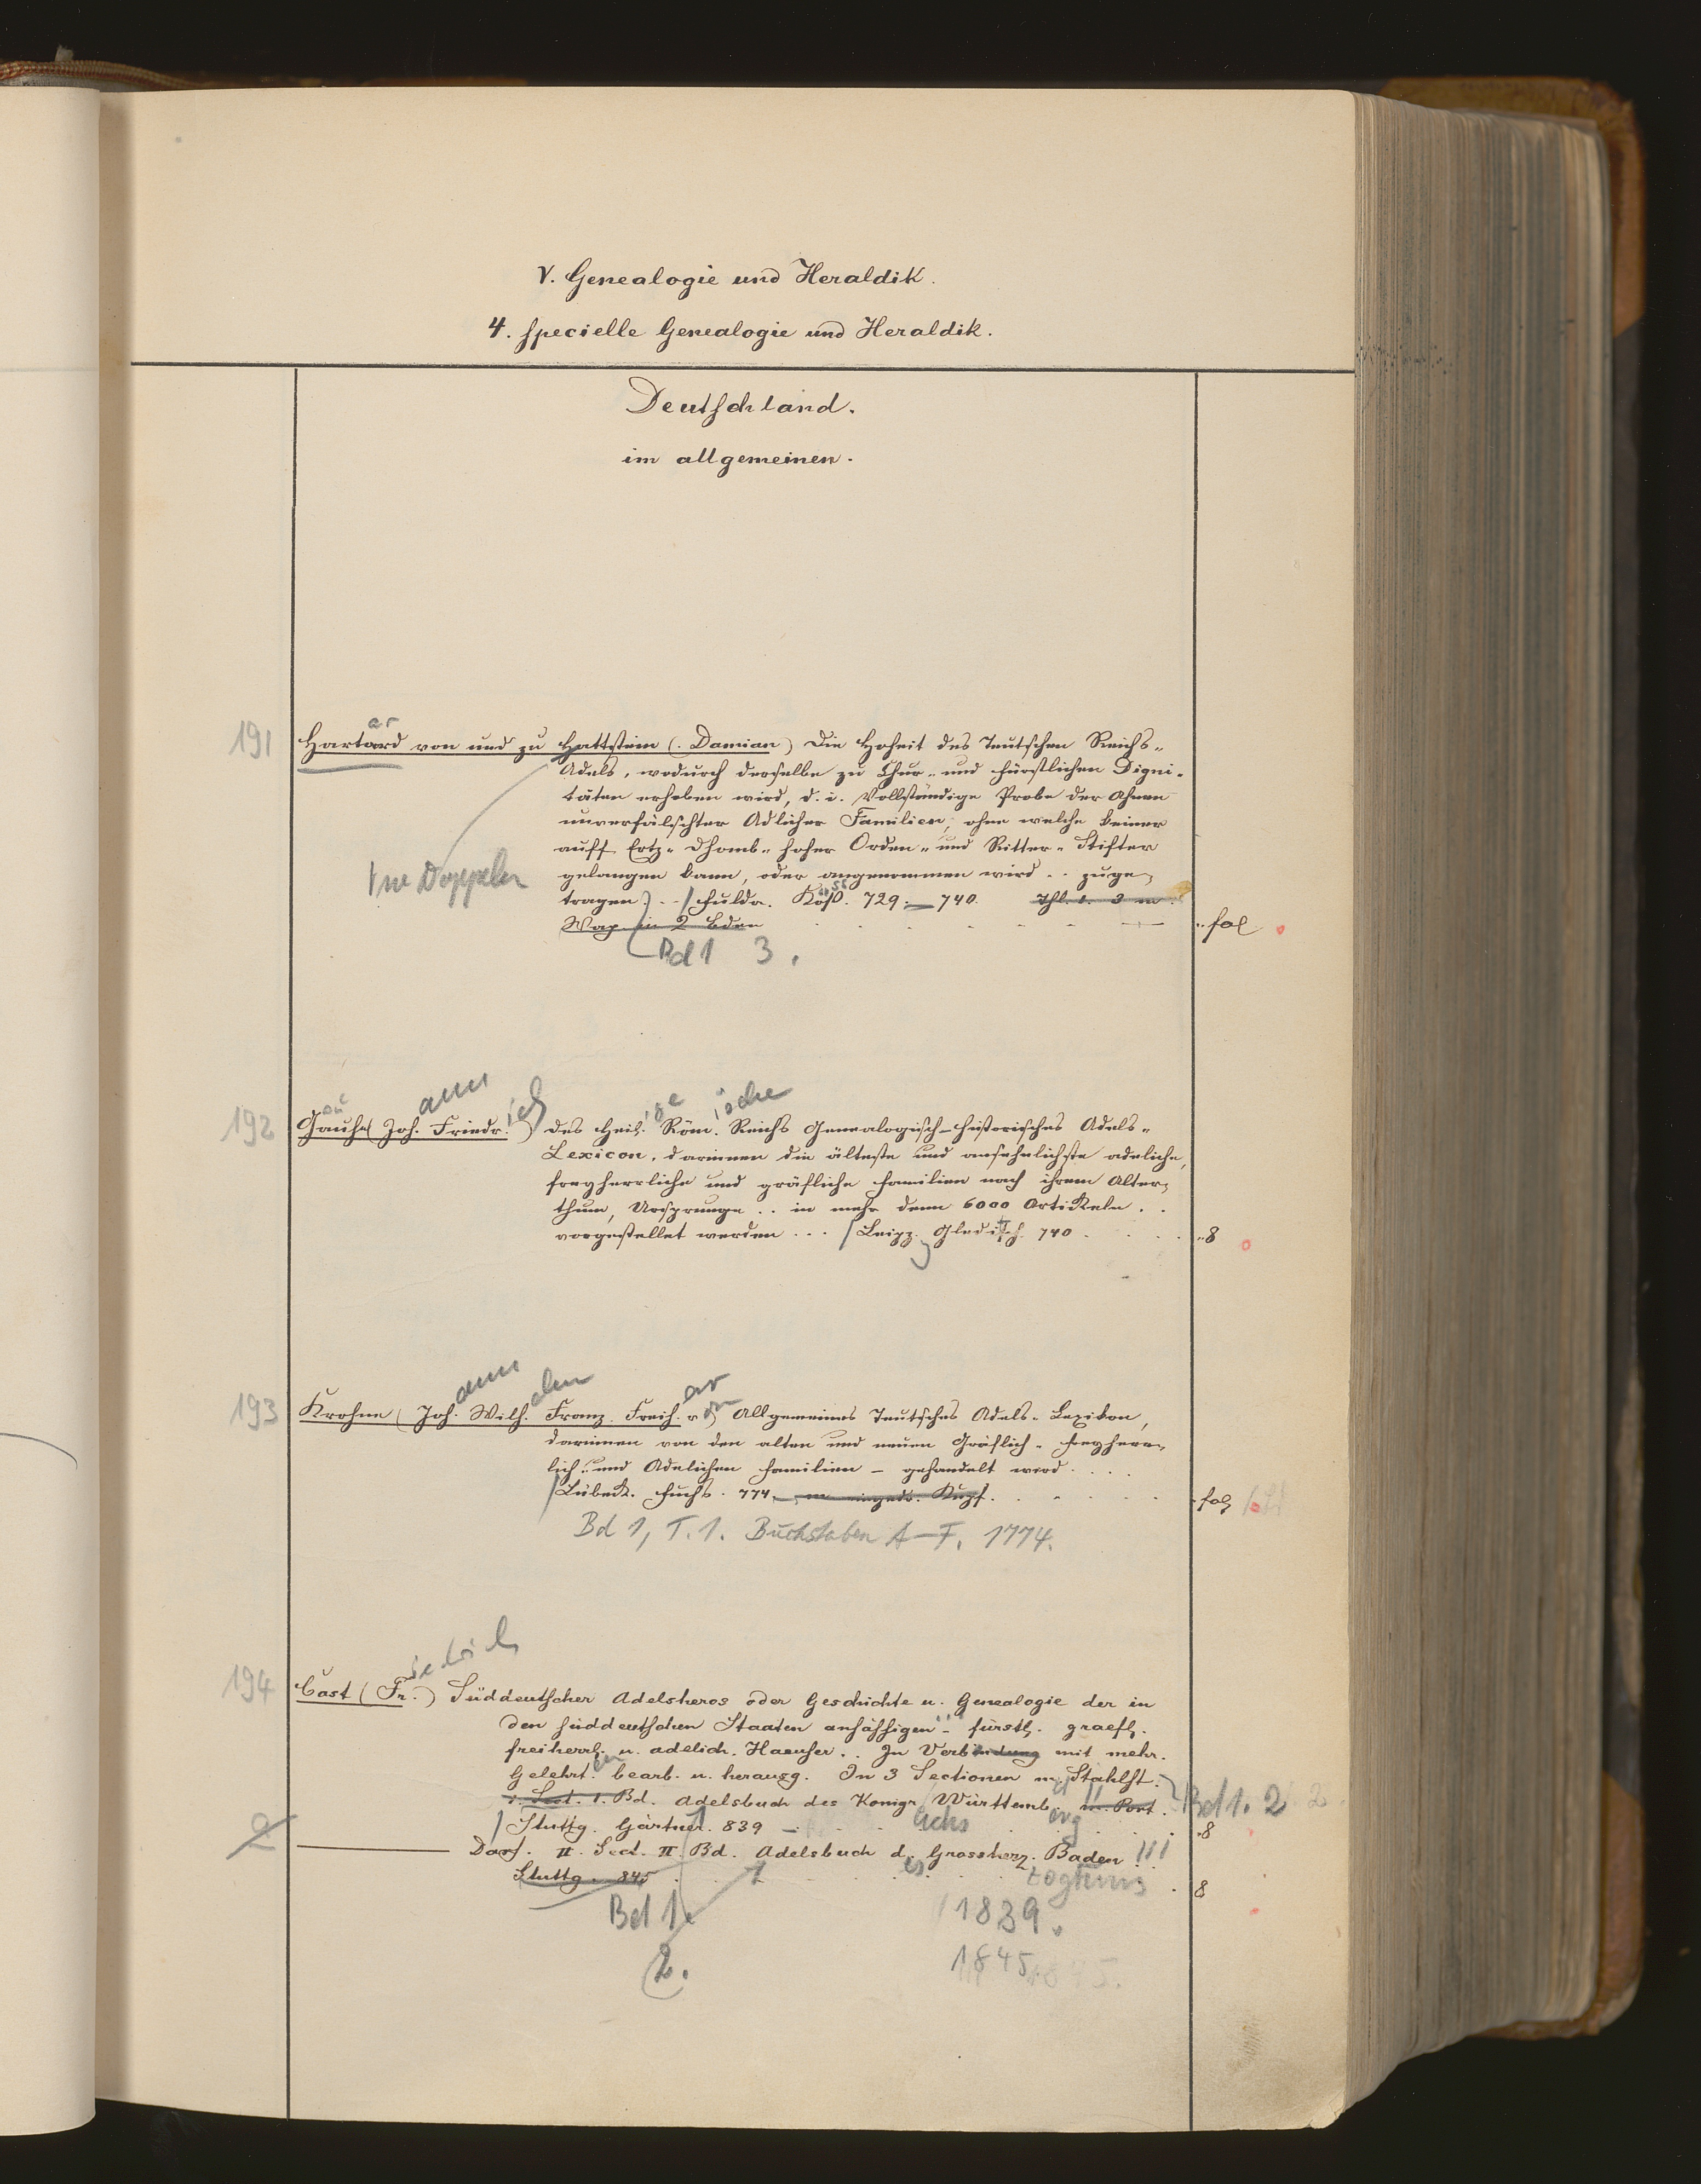 V. Genealogie und Heraldik.
4. specielle Genealogie und Heraldik.
Deutschland.
im allgemeinen.
ar
191 Hartard von und zu Hattstein (Damian) Die Hoheit des Teutschen Reichs-
Adels, wodurch derselbe zu Chur- und fürstlichen Digni-
täten erhoben wird, d. i. Vollständige Probe der Ahnen
unverfälschter Adlicher Familien, ohne welche keiner
auff Ertz- Dhomb- hoher Orden- und Ritter- Stifter
gelangen kann, oder angenommen wird .. zuge-
Doppeln
tragen .. / Fulda. Köß. 729 – 740. Thl. 1. 3 m.
Wap. in 2 Bden fol
Bd 1 3.
au ann ich ige ische
192 Gauhe (Joh. Friedr.) des Heil. Röm. Reichs Genealogisch-historisches Adels-
Lexicon, darinnen die älteste und ansehnlichste adeliche,
freyherrliche und gräfliche Familien nach ihrem Alter-
thum, Ursprunge .. in mehr denn 6000 Artikeln ..
vorgestellet werden ... / Leipz. Gleditsch 740 8
ann elm ar on
193 Krohne (Joh. Wilh. Franz. Freih. v.) Allgemeines Teutsches Adels- Lexikon,
darinnen von den alten und neuen Gräflich- freyherr-
lich- und Adelichen Familien – gehandelt wird ....
/ Lübeck. Fuchs. 774. m. eingedr. Kupf. fol
Bd 1, T. 1. Buchstaben A–F. 1774.
iedrich
194 Cast (Fr.) Süddeutscher Adelsheros oder Geschichte u. Genealogie der in
den süddeutschen Staaten ansässigen fürstl. graefl.
freiherrl. u. adelich. Haeuser .. In Verbindung mit mehr.
en
Gelehrt. bearb. u. herausg. In 3 Sectionen m. Stahlst.
1. Sect. 1. Bd. Adelsbuch des Königr. Württemb. m. Port. Bd 1. 2
eichs erg
/ Stuttg. Gärtner. 839 – 8
2 Dass. II. Sect. II. Bd. Adelsbuch d. Grossherz. Baden
es
Stuttg. 845 8
Bd 1. 1839.
2. 1845.